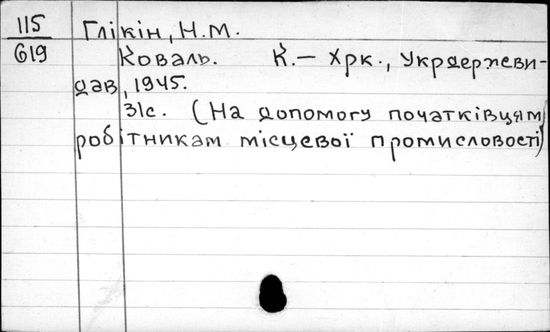 115 Глікін, Н.М.
619 Коваль. К.— Хрк., Укрдержви-
дав, 1945.
31с. (На допомогу початківцям
робітникам місцевої промисловості)